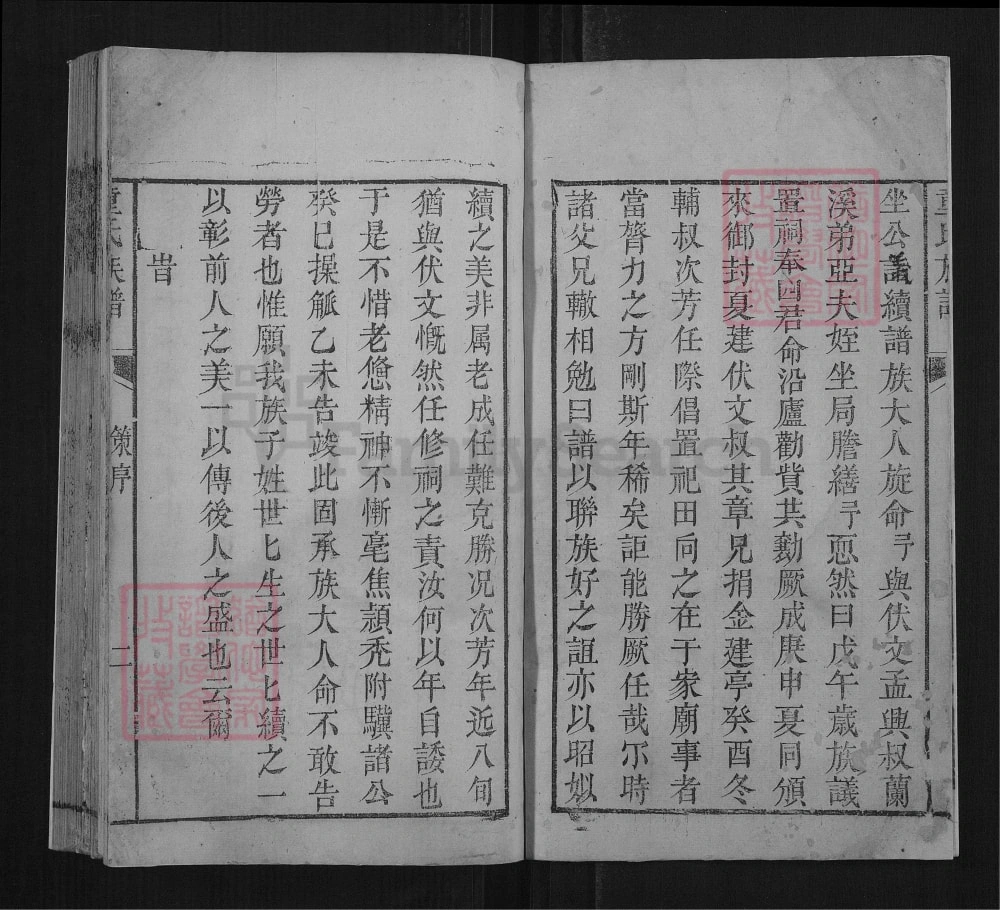 童氏族譜
坐公議續譜族大人旋命予與伏文孟興叔蘭
溪弟亞夫姪坐局膽繕予恧然曰戊午歲族議
置祠奉四君命沿廬勸貲共勷厥成庚申夏同頒
來御封夏建伏文叔其章兄捐金建亭癸酉冬
輔叔次芳任際倡置祀田向之在于家廟事者
當膂力之方剛斯年稀矣詎能勝厥任哉尒時
諸父兄轍相勉曰譜以聯族好之誼亦以昭姒
續之美非属老成任難克勝况次芳年近八旬
猶與伏文慨然任修祠之責汝何以年自諉也
于是不惜老憊精神不慚毫焦頴秃附驥諸公
癸巳操觚乙未告竣此固承族大人命不敢告
勞者也惟願我族子姓世匕生之世匕續之一
以彰前人之美一以傳後人之盛也云爾
旹
童氏族譜 策序 二